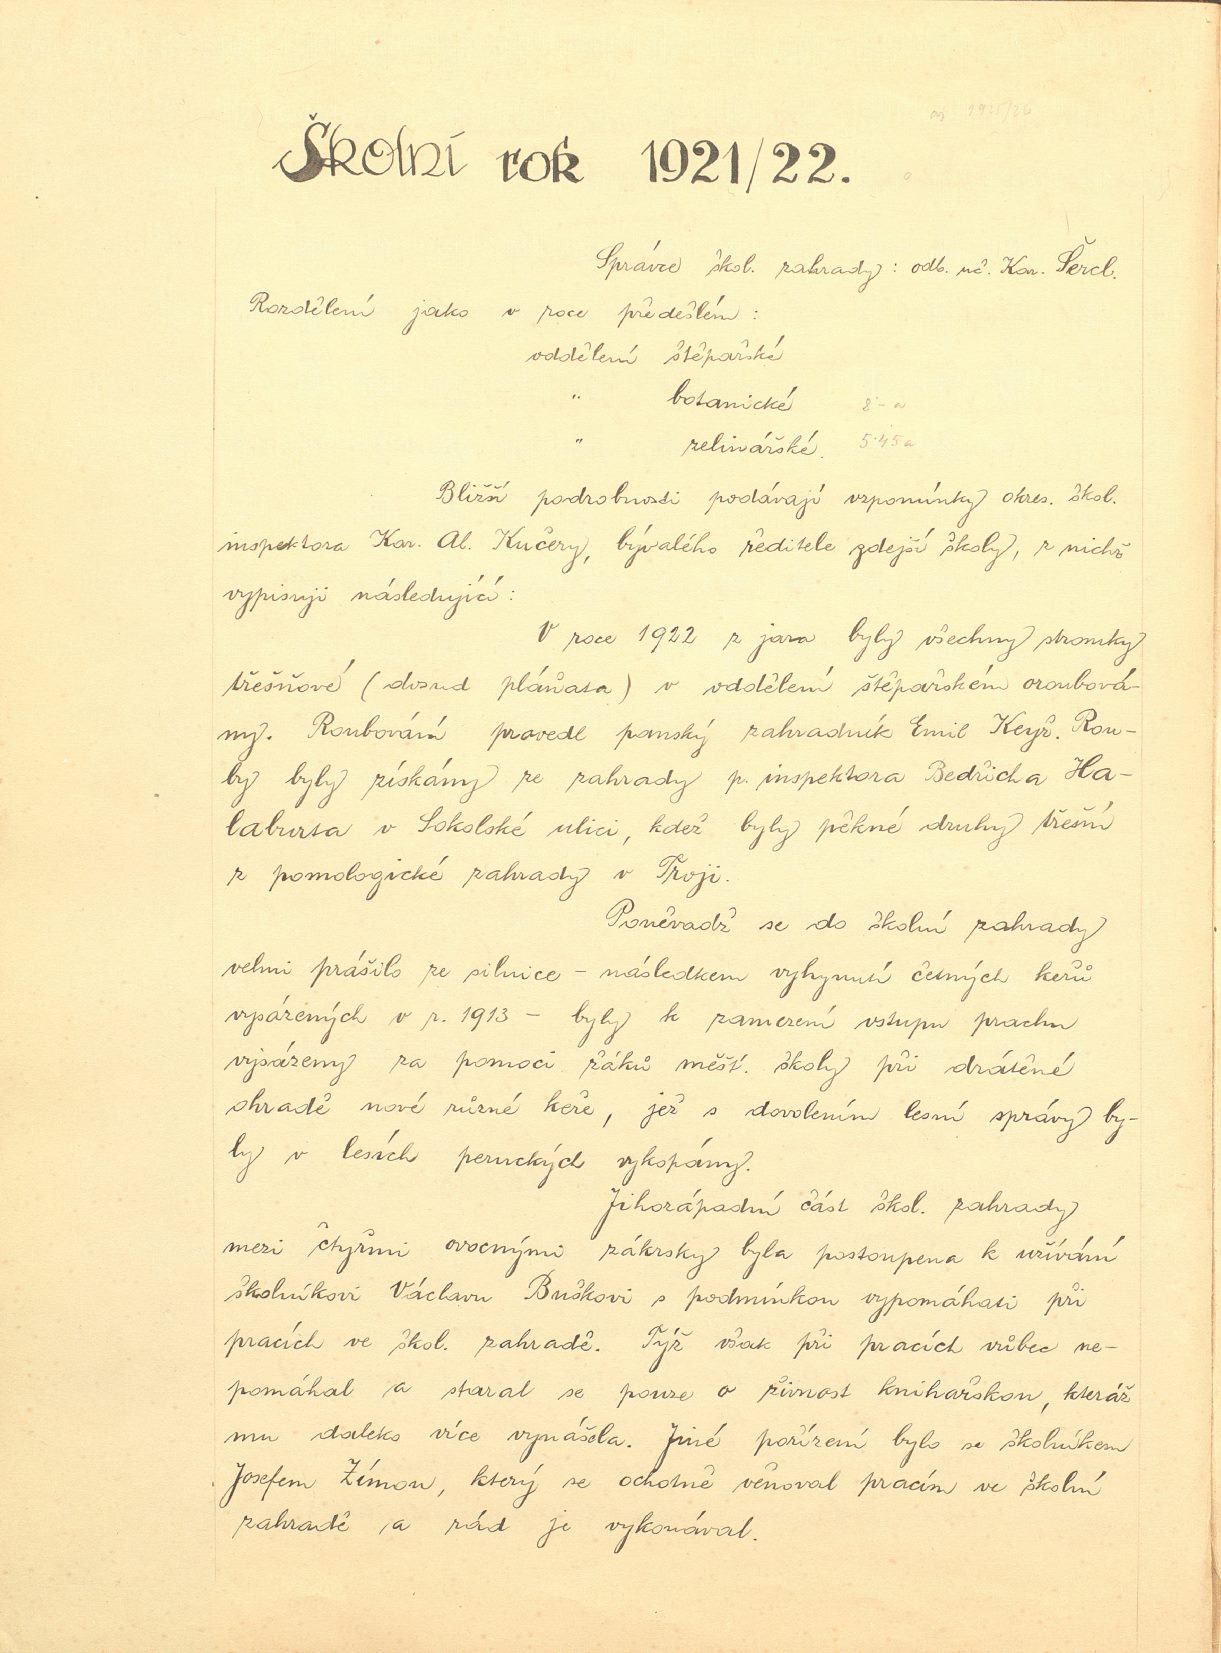 až 1925/26
Školní rok 1921/22.
Správce škol. zahrady: odb. uč. Kar. Šercl.
Rozdělení jako v roce předešlém:
oddělení štěpařské
" botanické 8·–a
" zelinářské. 5·45a
Bližší podrobnosti podávají vzpomínky okres. škol.
inspektora Kar. Al. Kučery, bývalého ředitele zdejší školy, z nichž
vypisuji následující:
V roce 1922 z jara byly všechny stromky
třešňové (dosud pláňata) v oddělení štěpařském oroubová-
ny. Roubování provedl panský zahradník Emil Keyř. Rou-
by byly získány ze zahrady p. inspektora Bedřicha Ha-
laburta v Sokolské ulici, kdež byly pěkné druhy třešní
z pomologické zahrady v Troji.
Poněvadž se do školní zahrady
velmi prášilo ze silnice – následkem vyhynutí četných keřů
vysázených v r. 1913 – byly k zamezení vstupu prachu
vysázeny za pomoci žáků měšť. školy při drátěné
ohradě nové různé keře, jež s dovolením lesní správy by-
ly v lesích peruckých vykopány.
Jihozápadní část škol. zahrady
mezi čtyřmi ovocnými zákrsky byla postoupena k užívání
školníkovi Václavu Buškovi s podmínkou vypomáhati při
pracích ve škol. zahradě. Týž však při pracích vůbec ne-
pomáhal a staral se pouze o živnost knihařskou, kteráž
mu daleko více vynášela. Jiné pořízení bylo se školníkem
Josefem Zímou, který se ochotně věnoval pracím ve školní
zahradě a rád je vykonával.